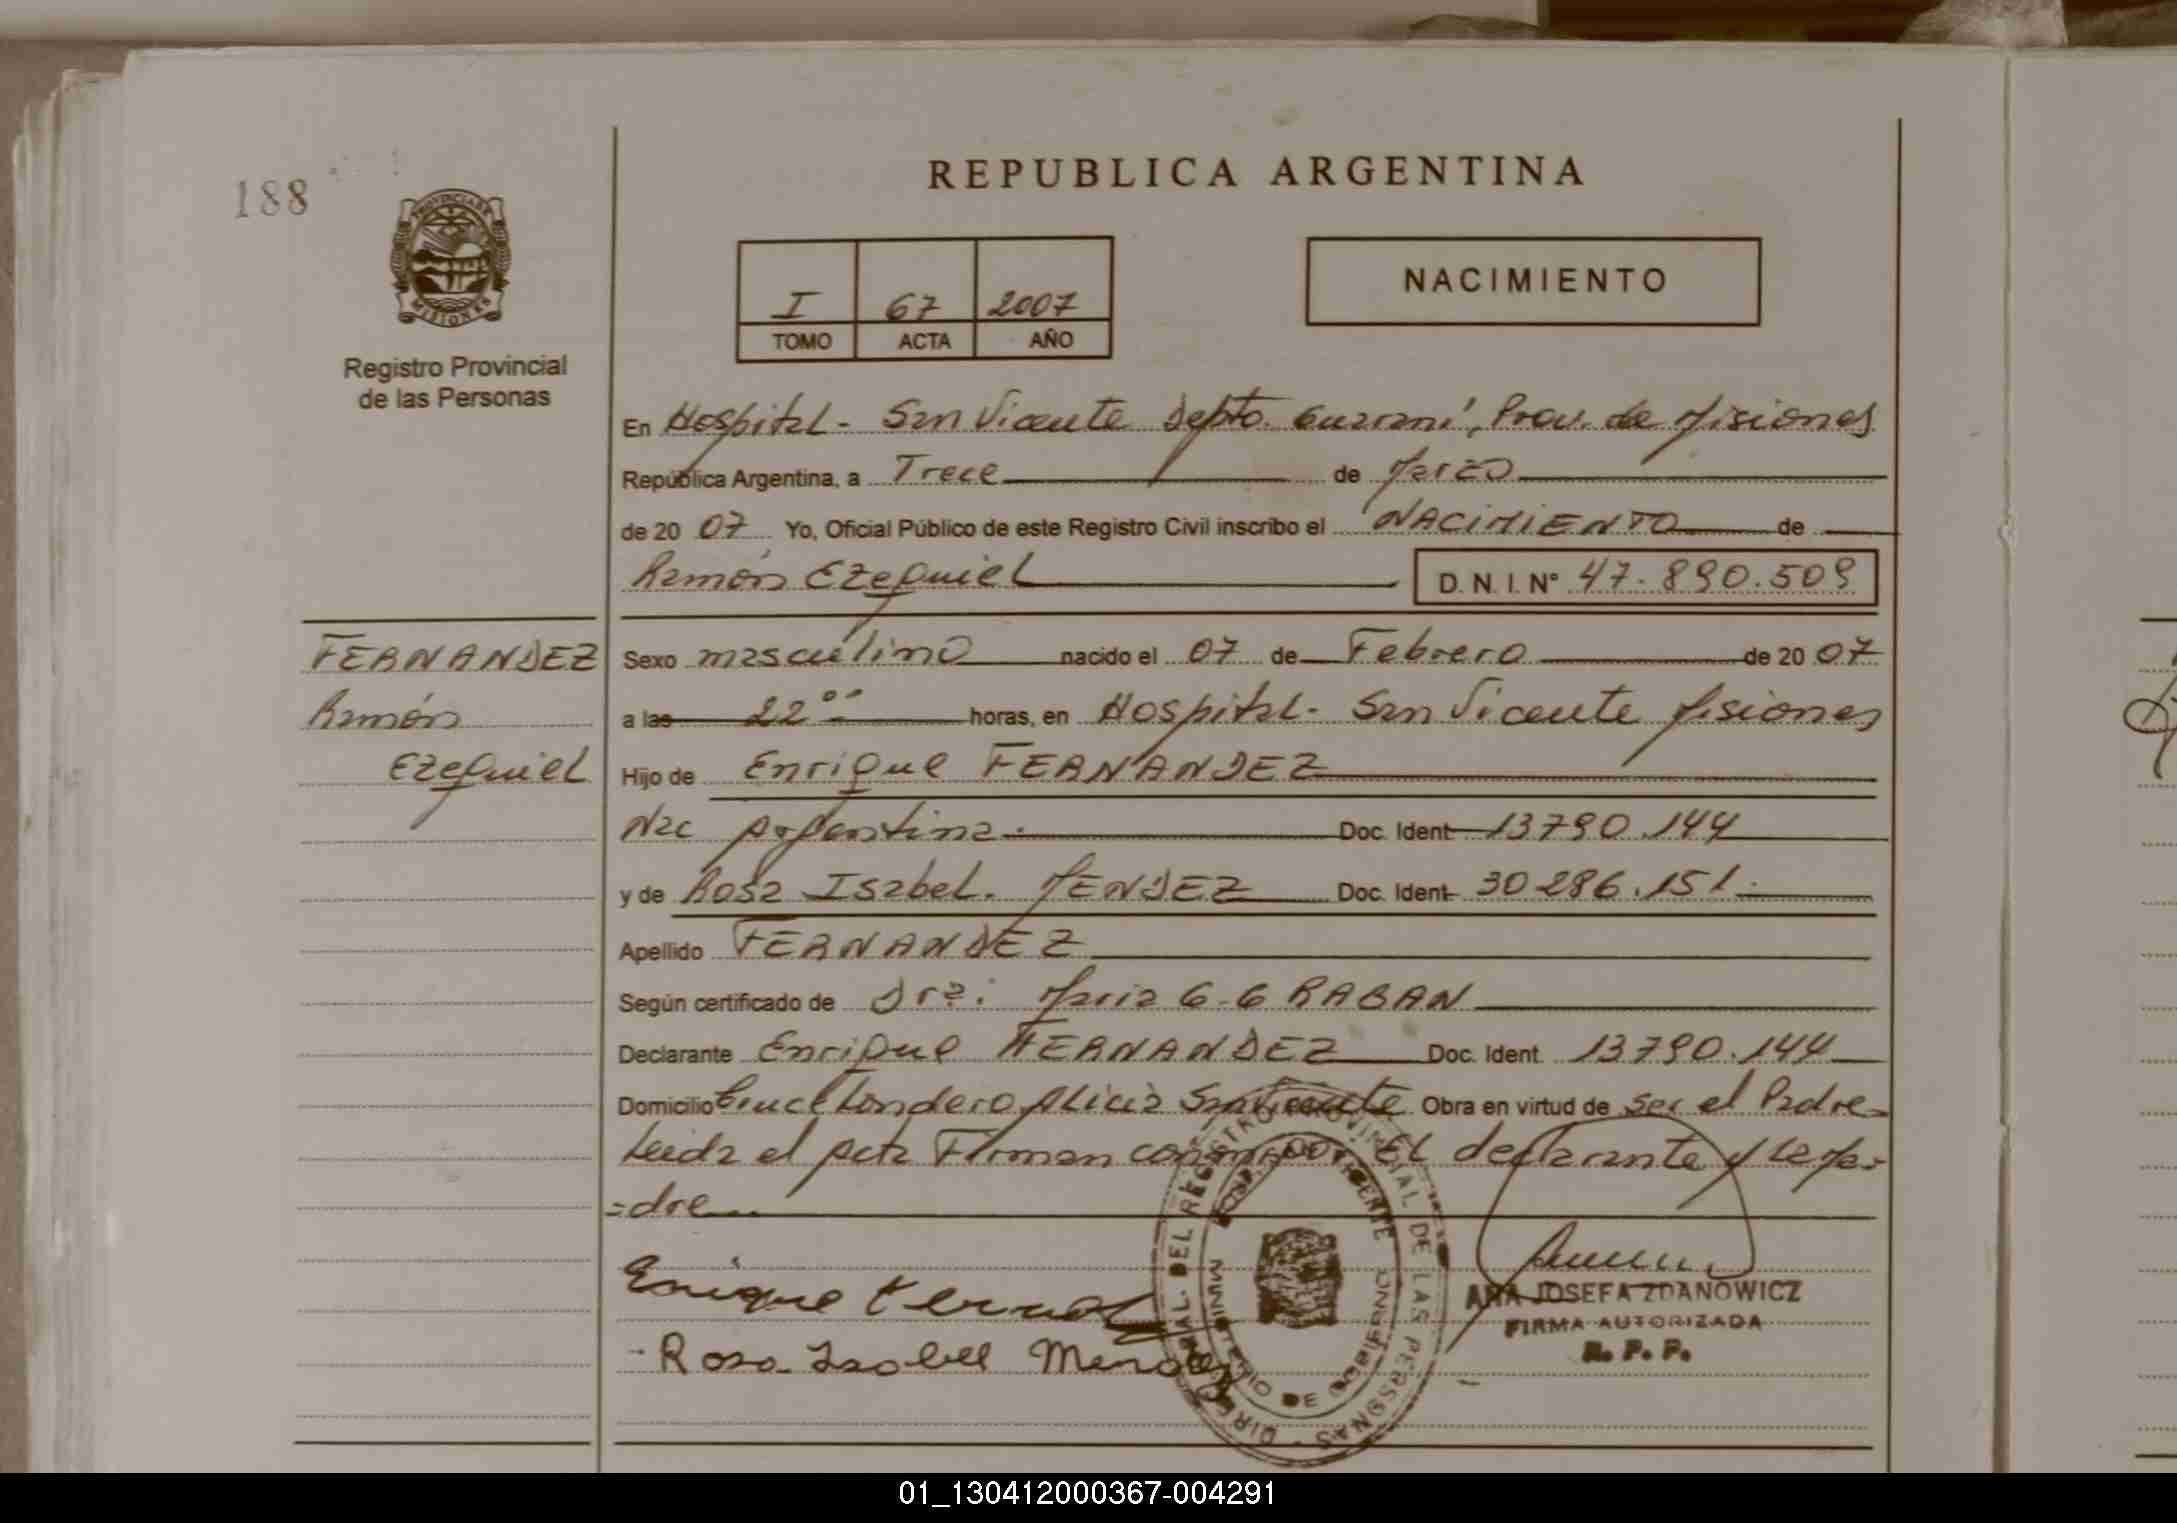 188
PROVINCIA DE
MISIONES
Registro Provincial
de las Personas
REPUBLICA ARGENTINA
I 67 2007
TOMO ACTA AÑO
NACIMIENTO
En Hospital - San Vicente Depto. Guaraní, Prov. de Misiones
República Argentina, a Trece de Marzo
de 20 07 Yo, Oficial Público de este Registro Civil inscribo el NACIMIENTO de
Ramón Ezequiel D.N.I. N° 47.890.509
FERNANDEZ
Ramón
Ezequiel
Sexo masculino nacido el 07 de Febrero de 20 07
a las 22°° horas, en Hospital - San Vicente Misiones
Hijo de Enrique FERNANDEZ
Nac Argentina. Doc. Ident 13790.144
y de Rosa Isabel. MENDEZ Doc. Ident 30286.151.
Apellido FERNANDEZ
Según certificado de Dra: Maria G.G RABAN
Declarante Enrique FERNANDEZ Doc. Ident. 13790.144
Domicilio Cruce Londero Alicia San Vicente Obra en virtud de ser el Padre
Leida el Acta Firman conmigo: El declarante y la Ma=
=dre
Enrique Fernandez
Rosa Isabel Mendez
DIR. GRAL. DEL REGISTRO PROVINCIAL DE LAS PERSONAS
SAN VICENTE
MINISTERIO DE GOBIERNO
ANA JOSEFA ZDANOWICZ
FIRMA AUTORIZADA
R. P. P.
01_130412000367-004291